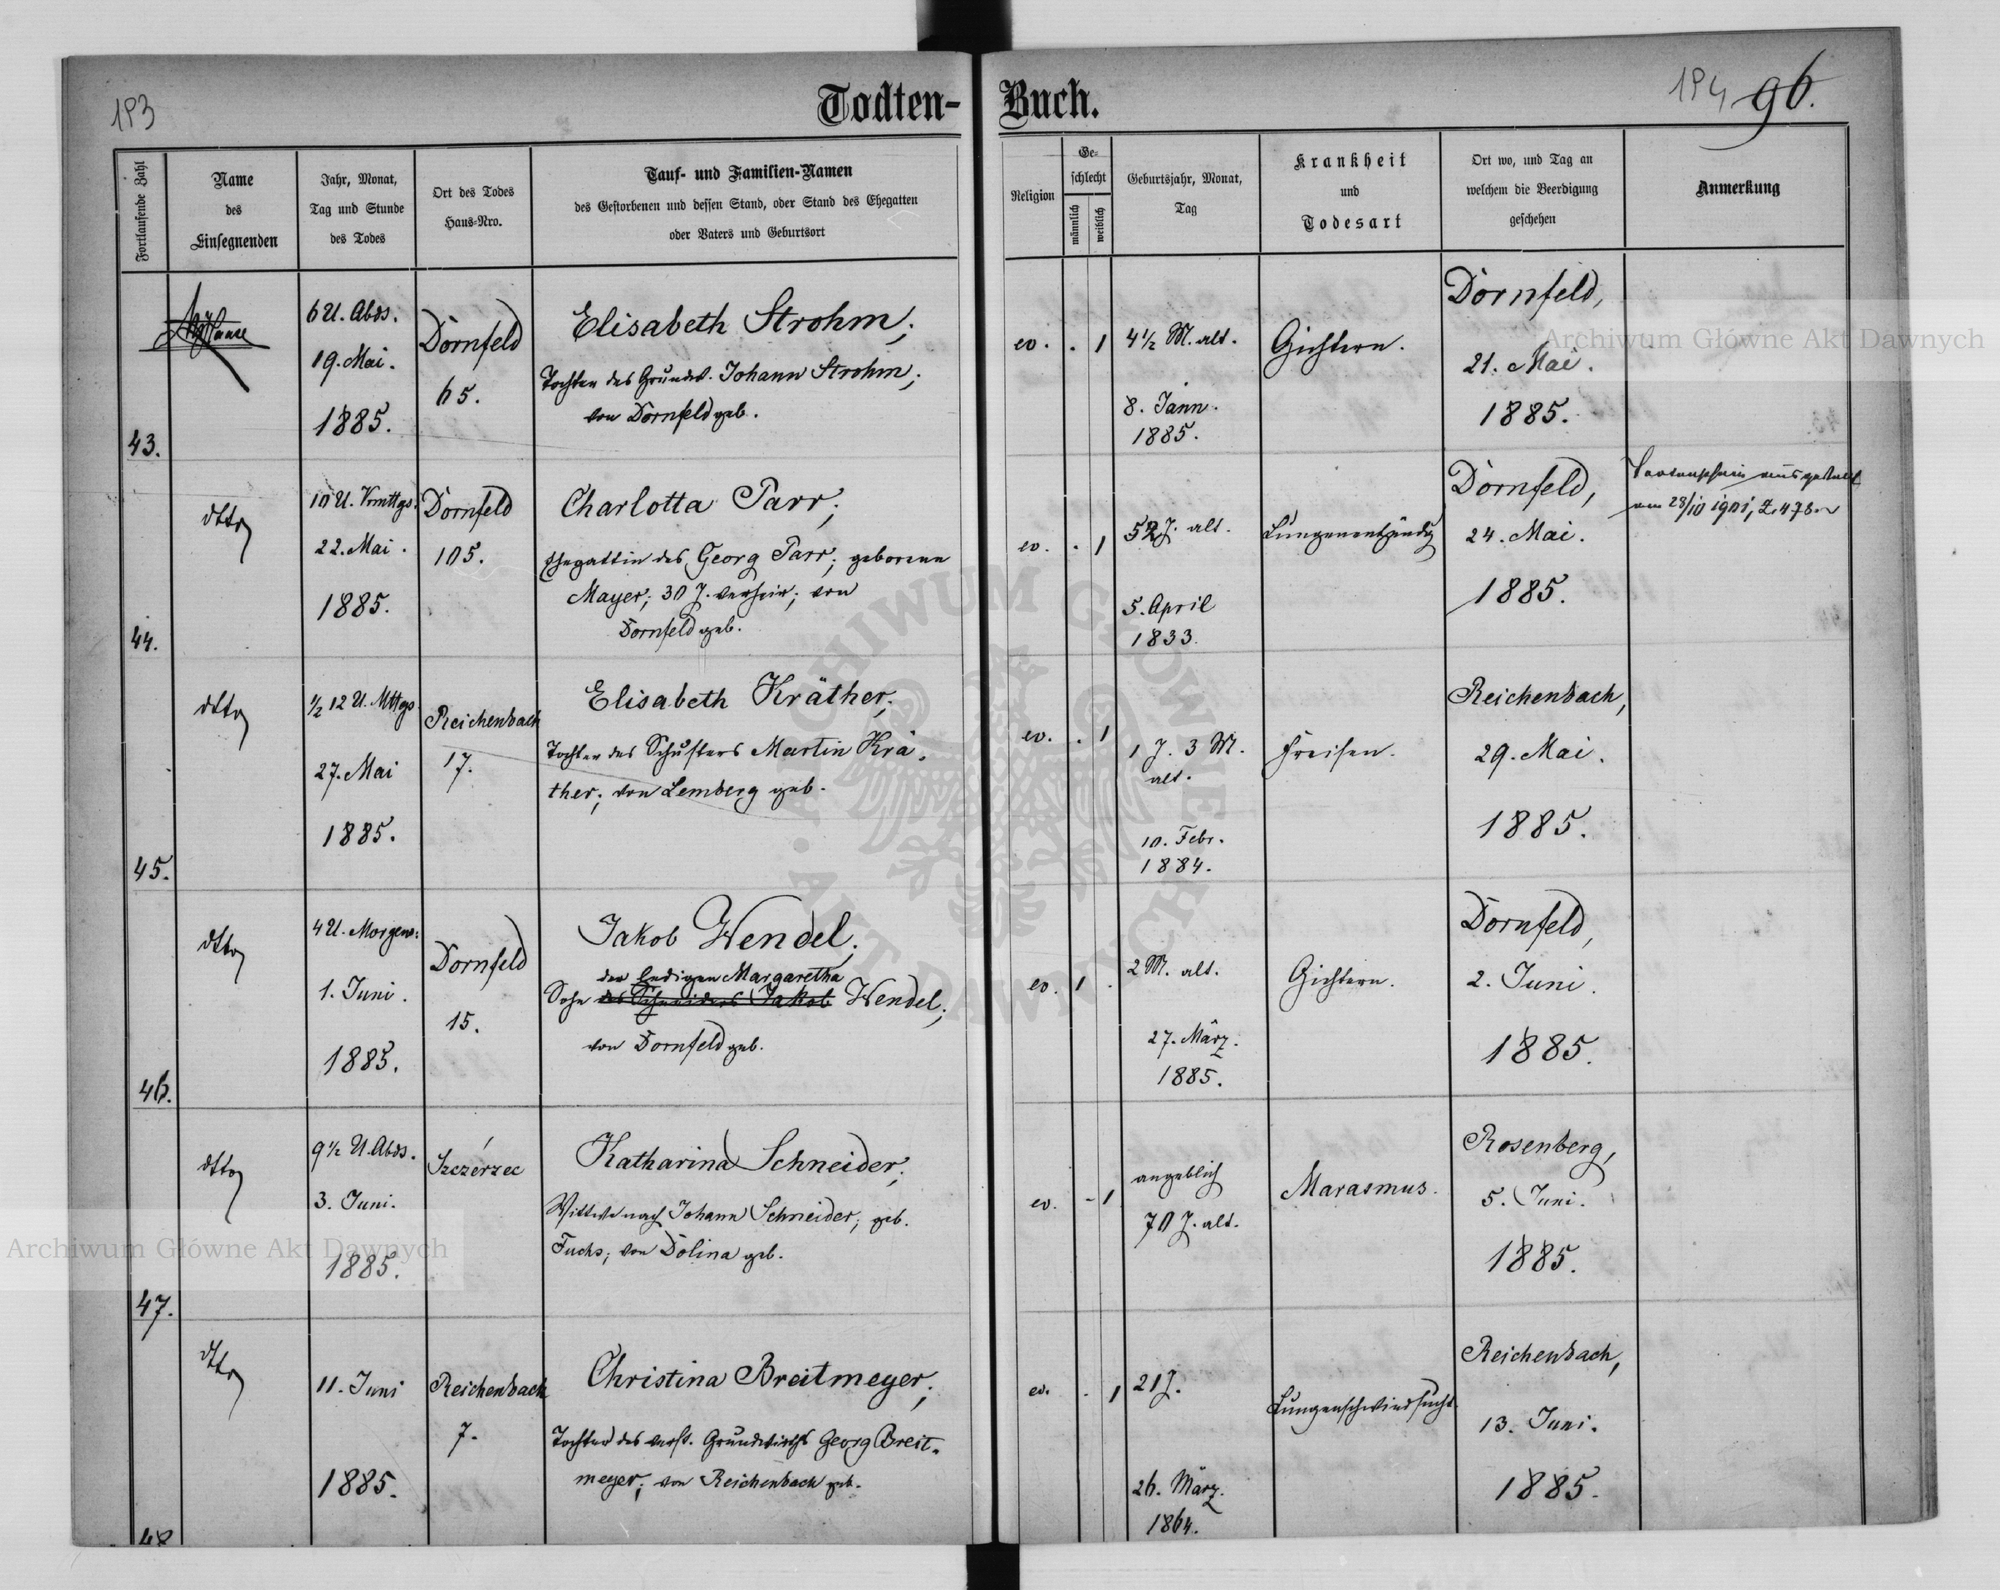 183
Todten-
Buch.
184 96.
Fortlaufende Zahl
Name
des
Einsegnenden
Jahr, Monat,
Tag und Stunde
des Todes
Ort des Todes
Haus-Nro.
Tauf- und Familien-Namen
des Gestorbenen und dessen Stand, oder Stand des Ehegatten
oder Vaters und Geburtsort
Religion
Ge-
schlecht
männlich
weiblich
Geburtsjahr, Monat,
Tag
Krankheit
und
Todesart
Ort wo, und Tag an
welchem die Beerdigung
geschehen
Anmerkung
43.
6 U. Abds.
19. Mai.
1885.
Dornfeld
65.
Elisabeth Strohm;
Tochter des Grundw. Johann Strohm;
von Dornfeld geb.
ev. . 1
4½ M. alt.
8. Jänn.
1885.
Gichtern.
Dornfeld,
21. Mai.
1885.
44.
dtto
10 U. Vrmttgs.
22. Mai.
1885.
Dornfeld
105.
Charlotta Parr;
Ehegattin des Georg Parr; geborene
Mayer; 30 J. verheir; von
Dornfeld geb.
ev. . 1
52 J. alt.
5. April
1833.
Lungenentzündg
Dornfeld,
24. Mai.
1885.
Todtenschein ausgestellt
am 28/10 1901, Z. 478.
45.
dtto
½ 12 U. Mttgs
27. Mai
1885.
Reichenbach
17.
Elisabeth Kräther;
Tochter des Schusters Martin Krä-
ther; von Lemberg geb.
ev. . 1
1 J. 3 M.
alt.
10. Febr.
1884.
Freisen.
Reichenbach,
29. Mai.
1885.
46.
dtto
4 U. Morgens.
1. Juni.
1885.
Dornfeld
15.
Jakob Wendel;
der ledigen Margaretha
Sohn des Schneiders Jakob Wendel;
von Dornfeld geb.
ev. 1 .
2 M. alt.
27. März.
1885.
Gichtern.
Dornfeld,
2. Juni.
1885.
47.
dtto
9½ U. Abds.
3. Juni.
1885.
Szczérzec
Katharina Schneider;
Wittwe nach Johann Schneider; geb.
Fuchs; von Dolina geb.
ev. - 1
angeblich
70 J. alt.
Marasmus.
Rosenberg,
5. Juni.
1885.
48
dtto
11. Juni
1885.
Reichenbach
7.
Christina Breitmeyer;
Tochter des verst. Grundwirths Georg Breit-
meyer; von Reichenbach geb.
ev. . 1
21 J.
26. März.
1864.
Lungenschwindsucht
Reichenbach,
13. Juni.
1885.
Archiwum Główne Akt Dawnych
Archiwum Główne Akt Dawnych
ARCHIWUM GŁÓWNE AKT DAWNYCH